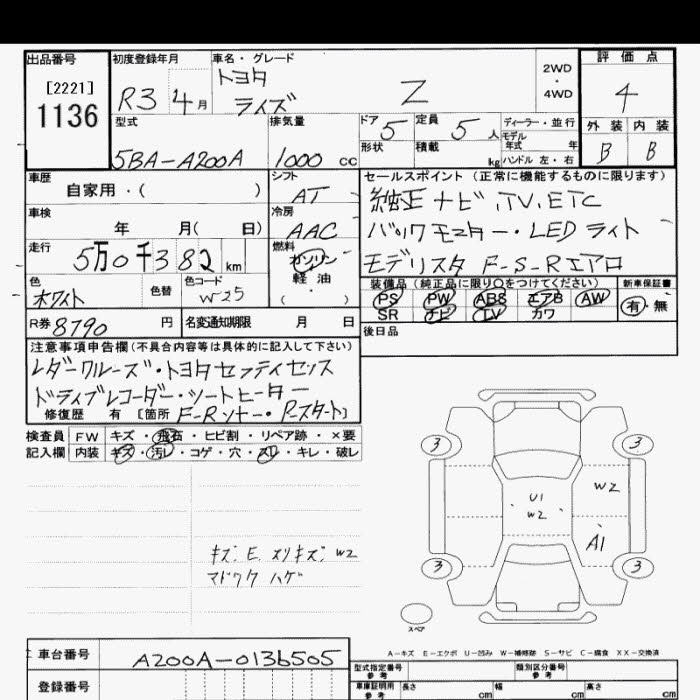 出品番号
[2221]
1136
初度登録年月
R3 4月
車名・グレード
トヨタ
ライズ Z
2WD
・
4WD
評価点
4
外装 内装
B B
型式
5BA-A200A
排気量
1000 cc
ドア 5
定員 5 人
形状
積載 kg
ディーラー・並行
モデル
年式 年
ハンドル 左・右
車歴
自家用・( )
シフト
AT
車検
年 月( 日)
冷房
AAC
走行
5万0千382 km
燃料
ガソリン
軽油
( )
色
ホワイト
色替
色コード
W25
R券 8790 円
名変通知期限 月 日
セールスポイント (正常に機能するものに限ります)
純正ナビ,TV,ETC
バックモニター・LEDライト
モデリスタ F-S-Rエアロ
装備品 (純正品に限り○をつけてください)
PS PW ABS エアB AW
SR ナビ TV カワ
新車保証書
有・無
後日品
注意事項申告欄(不具合内容等は具体的に記入して下さい)
レダークルーズ・トヨタセーフティセンス
ドライブレコーダー・シートヒーター
修復歴 有 [箇所 F-Rソナー・P-スタート]
検査員
記入欄
FW キズ・飛石・ヒビ割・リペア跡・×要
内装 キズ・汚レ・コゲ・穴・スレ・キレ・破レ
キズ, E, スリキズ, W2
マドワク ハゲ
3 3
W2
U1
W2
A1
3 3
スペア
A-キズ E-エクボ U-凹み W-補修跡 S-サビ C-腐食 XX-交換済
車台番号
A200A-0136505
登録番号
型式指定番号
参考
類別区分番号
参考
車庫証明用
参考
長さ cm
幅 cm
高さ cm